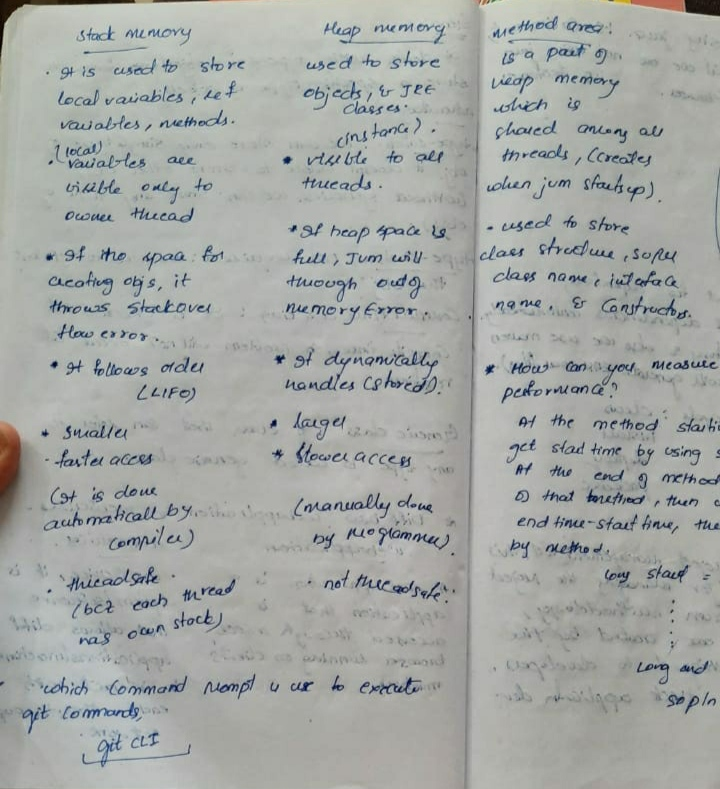 Stack memory
. It is used to store
local variables, ref
variables, methods.
(local)
. variables are
visible only to
owner thread
* If the space for
creating objs, it
throws stackover
flow error.
* It follows order
(LIFO)
* Smaller
- faster access
(It is done
automaticall by
compiler)
. threadsafe.
(bcz each thread
has own stack)
Heap memory
used to store
objects, & JRE
classes.
(instance).
* visible to all
threads.
* If heap space is
full, Jvm will
through outof
memory Error.
* It dynamically
handles (stored).
* larger
* slower access
(manually done
by programmer).
. not threadsafe.
- which command prompt u use to execute
git commands,
git CLI
method area:
is a part of
heap memory
which is
shared among all
threads, (creates
when jvm startsup).
- used to store
class structure, super
class name, interface
name, & Constructors.
* How can you measure
performance?
At the method starti
get start time by using s
At the end of method
that method, then
end time-start time, the
by method.
long start =
long end
sopln